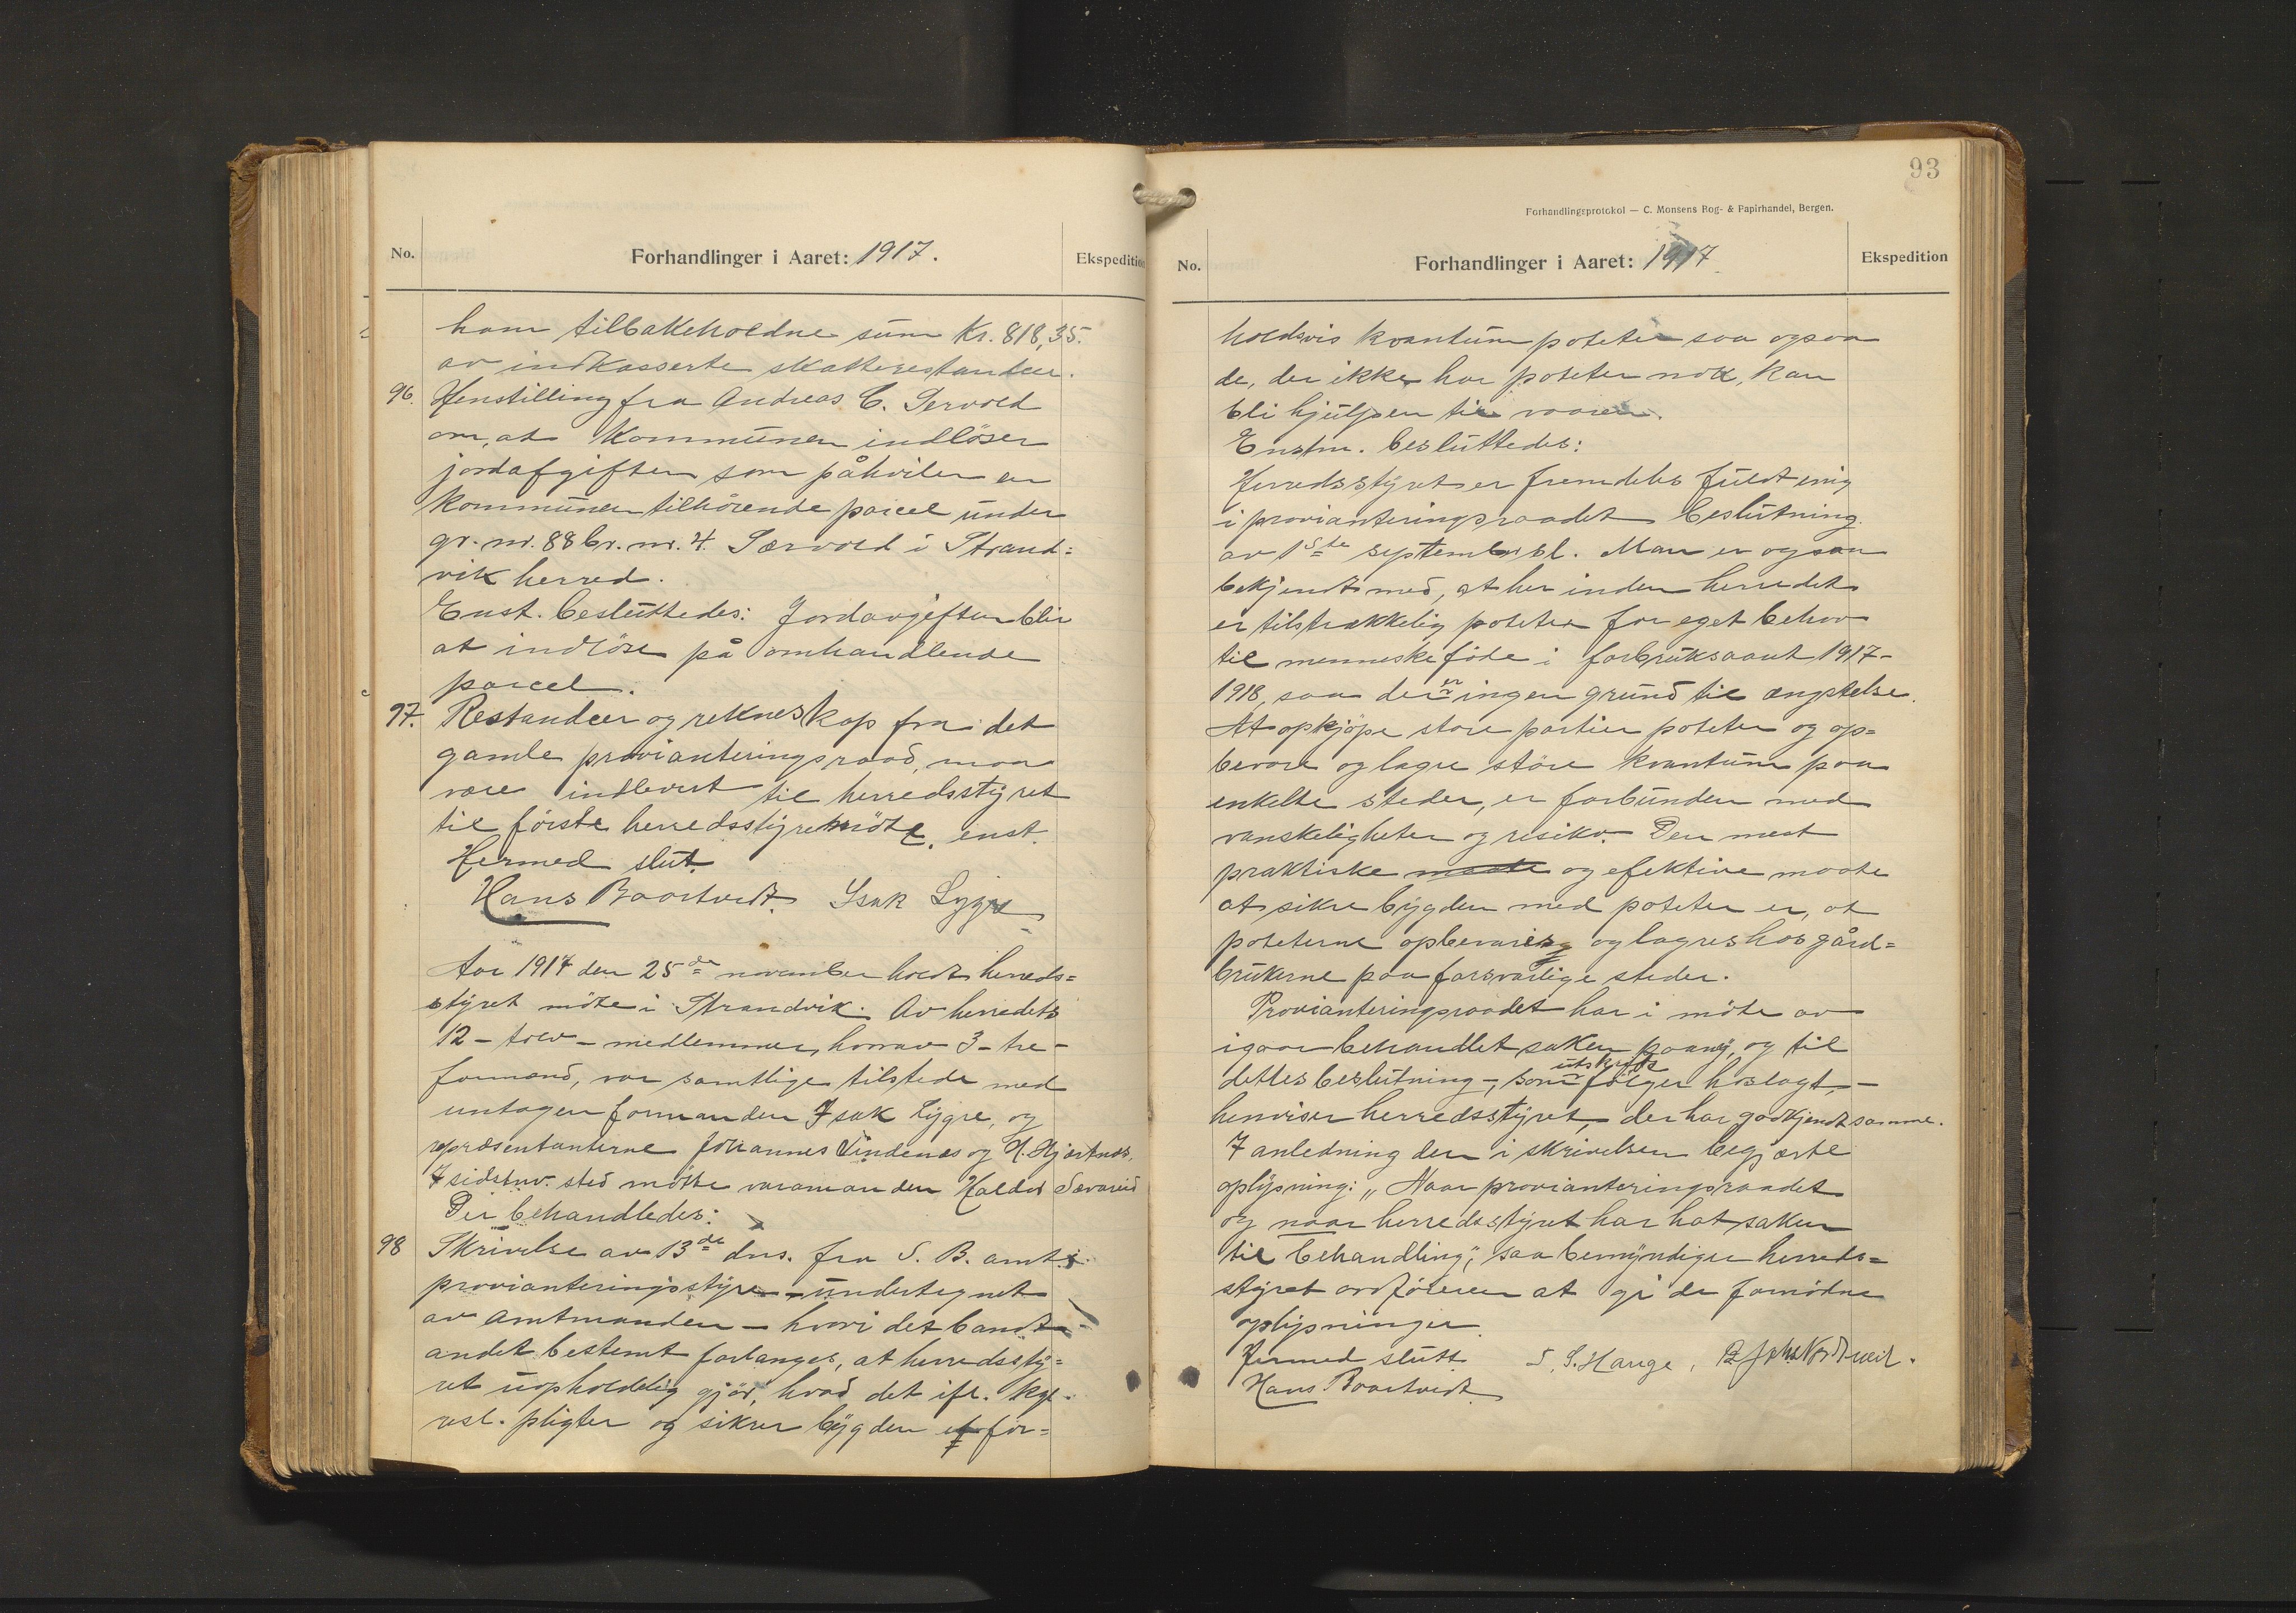 No.
Forhandlinger i Aaret: 1917.
Ekspedition
ham tilbakeholdne sum kr. 818,35.
av indkasserte skatterestandser.
96. Henstilling fra Andreas C. Tervold
om, at kommunen indlöser
jordafgiften som påhviler en
kommunen tilhörende parcel under
gr. nr. 88 br. nr. 4. Tærvold i Strand=
vik herred.
Enst. besluttedes: Jordavgiften blir
at indlöse på omhandlende
parcel.
97. Restandser og rekneskap fra det
gamle provianteringsraad, maa
være indlevert til herredsstyret
til förste herredsstyremöte. enst.
Hermed slut.
Hans Baartvedt. Isak Lygre
Aar 1917 den 25de november holdt herreds=
styret möte i Strandvik. Av herredets
12 – tolv – medlemmer, hvorav 3 – tre –
formænd, var samtlige tilstede med
untagen formanden Isak Lygre, og
repræsentanterne Johannes Vindenes og H. Hjartnes.
I sidstnv. sted mötte varamanden Haldor Sævareid
Der behandledes:
98 Skrivelse av 13de dns. fra S. B. amts
provianteringsstyre – undertegnet
av amtmanden – hvori det bandt
andet bestemt forlanges, at herredssty=
ret uopholdelig gjör, hvad det ifl. kgl.
resl. pligter og sikrer bygden et for=
93
Forhandlingsprotokol — C. Monsens Bog- & Papirhandel, Bergen.
No.
Forhandlinger i Aaret: 1917
Ekspedition
holdsvis kvantum poteter saa ogsaa
de, der ikke har poteter nok, kan
bli hjulpen til vaaren.
Enstm. besluttedes:
Herredsstyret er fremdeles fuldt enig
i provianteringsraadets beslutning
av 1ste september sl. Man er ogsaa
bekjendt med, at her inden herredet
er tilstrækkelig poteter for eget behov
til menneskeföde i forbruksaaret 1917-
1918, saa der er ingen grund til ængstelse.
At opkjöpe store partier poteter og op=
bevare og lagre störe kvantum paa
enkelte steder, er forbunden med
vanskeligheter og risiko. Den mest
praktiske maate og efektive maate
at sikre bygden med poteter er, at
poteterne opbevares og lagres hos gård=
brukerne paa forsvarlige steder.
Provianteringsraadet har i möte av
igaar behandlet saken paany, og til
dettes beslutning –, som utskrift fölger hoslagt, –
henviser herredsstyret, der har godkjendt samme.
I anledning den i skrivelsen begjærte
oplysning: „Naar provianteringsraadet
og naar herredsstyret har hat saken
til behandling", saa bemyndiger herreds=
styret ordföreren at gi de fornödne
oplysninger
Hermed slutt. S. S. Hauge,
Hans Baartvedt